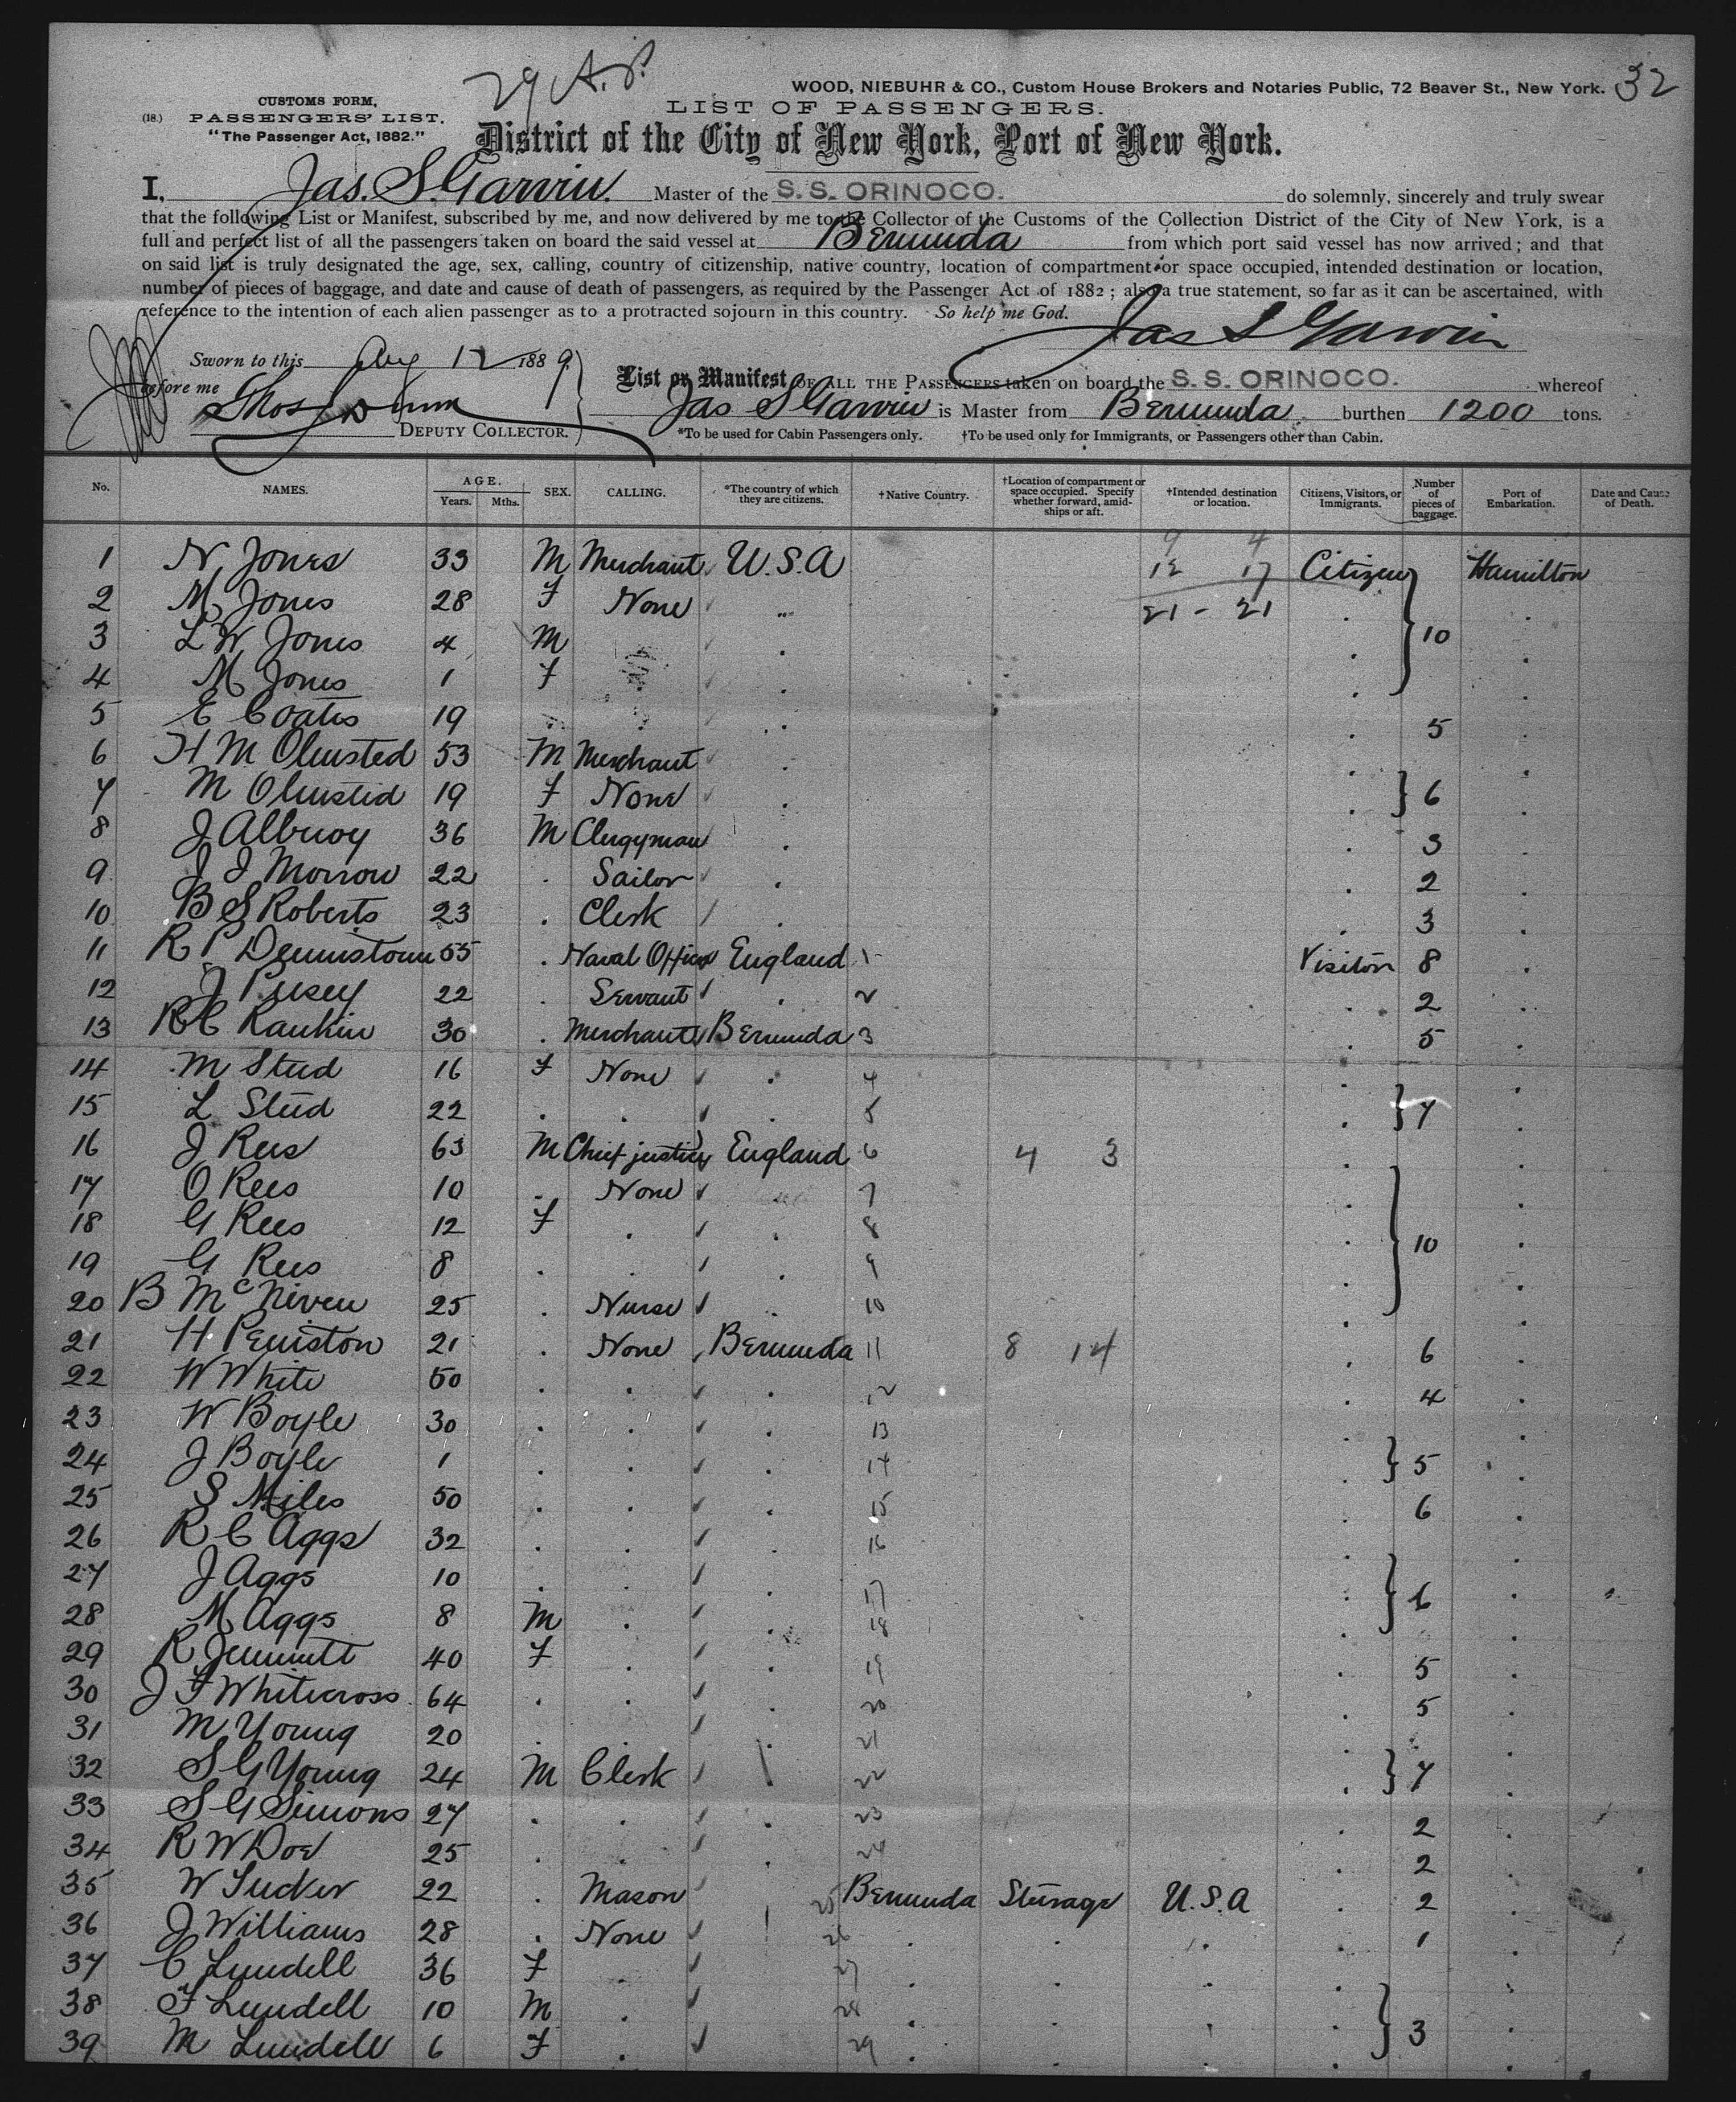 29 A. S.
WOOD, NIEBUHR & CO., Custom House Brokers and Notaries Public, 72 Beaver St., New York. 32
CUSTOMS FORM,
(18.) PASSENGERS' LIST.
"The Passenger Act, 1882."
LIST OF PASSENGERS.
District of the City of New York, Port of New York.
I, Jas. S. Garvin. Master of the S. S. ORINOCO. do solemnly, sincerely and truly swear
that the following List or Manifest, subscribed by me, and now delivered by me to the Collector of the Customs of the Collection District of the City of New York, is a
full and perfect list of all the passengers taken on board the said vessel at Bermuda from which port said vessel has now arrived; and that
on said list is truly designated the age, sex, calling, country of citizenship, native country, location of compartment or space occupied, intended destination or location,
number of pieces of baggage, and date and cause of death of passengers, as required by the Passenger Act of 1882; also a true statement, so far as it can be ascertained, with
reference to the intention of each alien passenger as to a protracted sojourn in this country. So help me God.
Jas S Garvin
Sworn to this Aug 12 1889.
before me
DEPUTY COLLECTOR.
List or Manifest OF ALL THE PASSENGERS taken on board the S. S. ORINOCO. whereof
Jas S Garvin is Master from Bermuda burthen 1200 tons.
*To be used for Cabin Passengers only. †To be used only for Immigrants, or Passengers other than Cabin.
No. NAMES. AGE. Years. Mths. SEX. CALLING. *The country of which they are citizens. †Native Country. †Location of compartment or space occupied. Specify whether forward, amidships or aft. †Intended destination or location. Citizens, Visitors, or Immigrants. Number of pieces of baggage. Port of Embarkation. Date and Cause of Death.
9 4
1 N Jones 33 M Merchant U.S.A 12 17 Citizen Hamilton
2 M Jones 28 F None " 21 - 21
3 L W Jones 4 M 10
4 M Jones 1 F
5 E Coates 19 5
6 H M Olmsted 53 M Merchant
7 M Olmsted 19 F None 6
8 J Albuoy 36 M Clergyman 3
9 J J Morrow 22 Sailor 2
10 B S Roberts 23 Clerk 3
11 R P Dennistoun 55 Naval Officer England 1 Visitor 8
12 J Pusey 22 Servant 2 2
13 R C Rankin 30 Merchant Bermuda 3 5
14 M Stud 16 F None 4
15 L Stud 22 5 7
16 J Rees 63 M Chief justice England 6 4 3
17 O Rees 10 None 7
18 G Rees 12 F 8
19 G Rees 8 9 10
20 B McNiven 25 Nurse 10
21 H Peniston 21 None Bermuda 11 8 14 6
22 W White 50 12 4
23 W Boyle 30 13
24 J Boyle 1 14 5
25 S Miles 50 15 6
26 R C Aggs 32 16
27 J Aggs 10 17
28 M Aggs 8 M 18 6
29 R Jemmett 40 F 19 5
30 J F Whitecross 64 20 5
31 M Young 20 21
32 S G Young 24 M Clerk 22 7
33 S G Simons 27 23 2
34 R W Doe 25 24 2
35 W Tucker 22 Mason 25 Bermuda Steerage U.S.A 2
36 J Williams 28 None 26 1
37 C Lundell 36 F 27
38 F Lundell 10 M 28
39 M Lundell 6 F 29 3